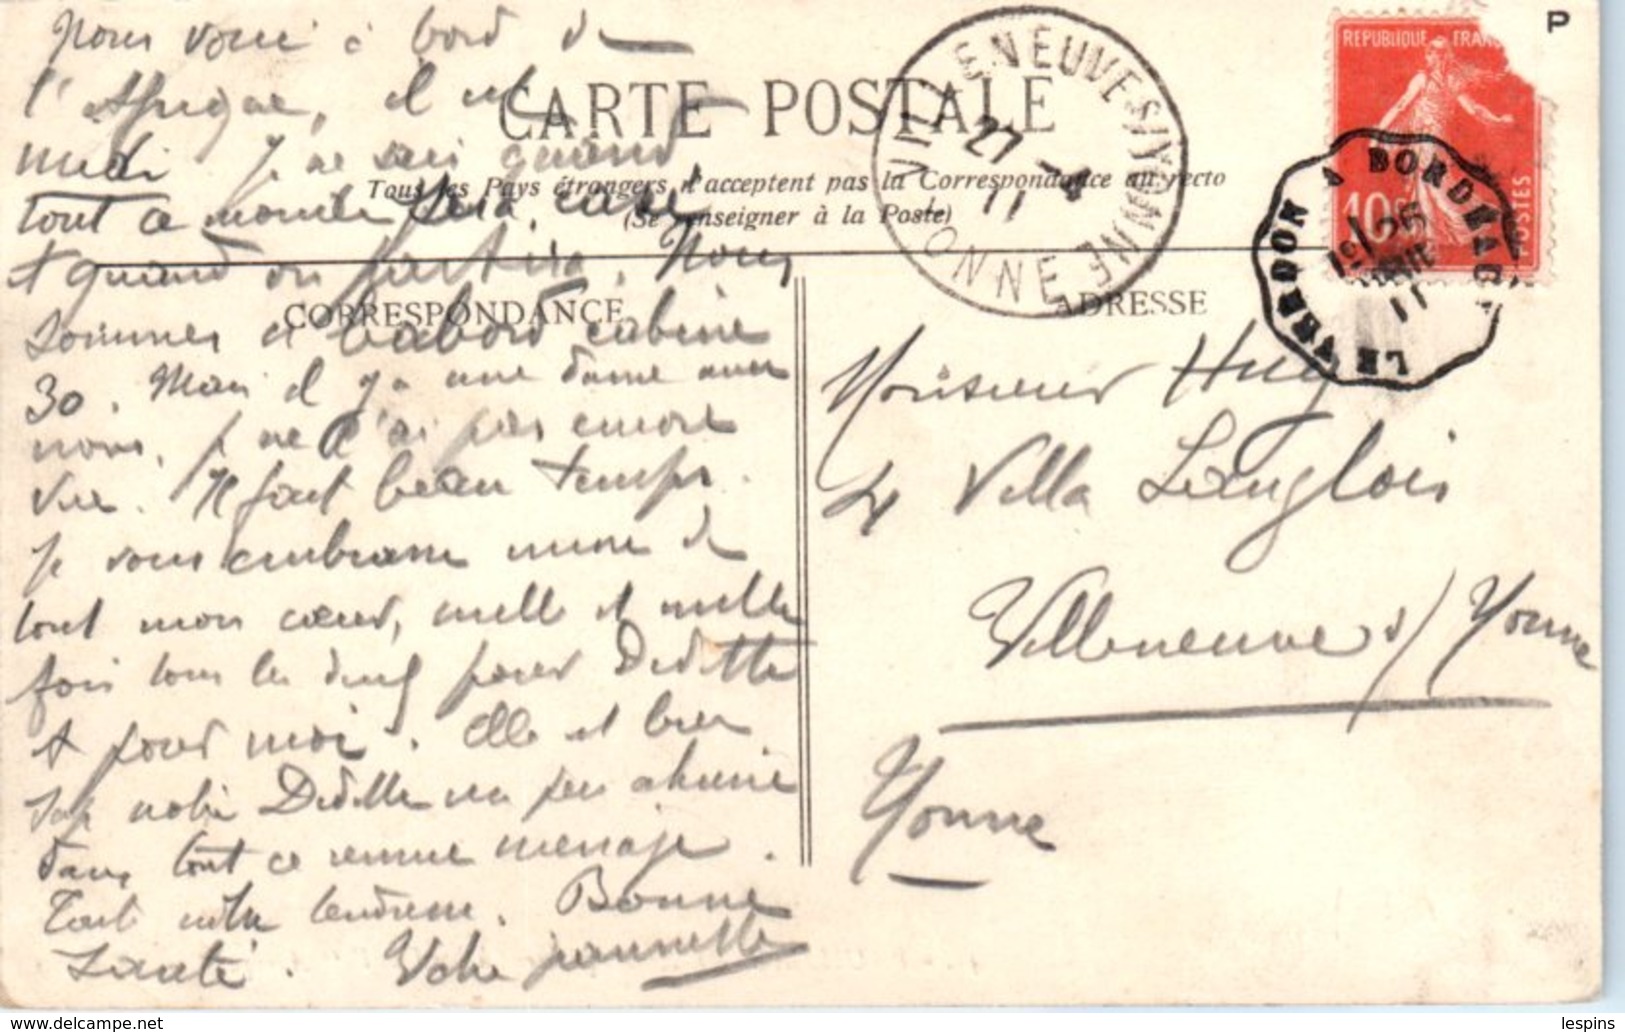 Nous voici à bord de
l'Afrique, il est
midi. Je ne sais quand
tout ce monde sera casé
et quand on partira. Nous
sommes à babord cabine
30. Mais il y a une dame avec
nous, je ne l'ai pas encore
vue. Il fait beau temps.
Je vous embrasse mon de
tout mon cœur, mille et mille
fois tous les deux pour Dédette
et pour moi. Elle est bien
notre Dédette un peu ahurie
dans tout ce remue menage.
Tout votre tendresse. Bonne
Santé. Votre Jeannette
CARTE POSTALE
Tous les Pays étrangers n'acceptent pas la Correspondance au recto
(Se renseigner à la Poste)
CORRESPONDANCE
ADRESSE
VILLENEUVE S/YONNE
27 -4
11
YONNE
REPUBLIQUE FRAN
10c
POSTES
P
LE VERDON A BORDEAUX
1º/25
11
Monsieur Huy
4 Villa Langlois
Villeneuve s/ Yonne
Yonne
lespins